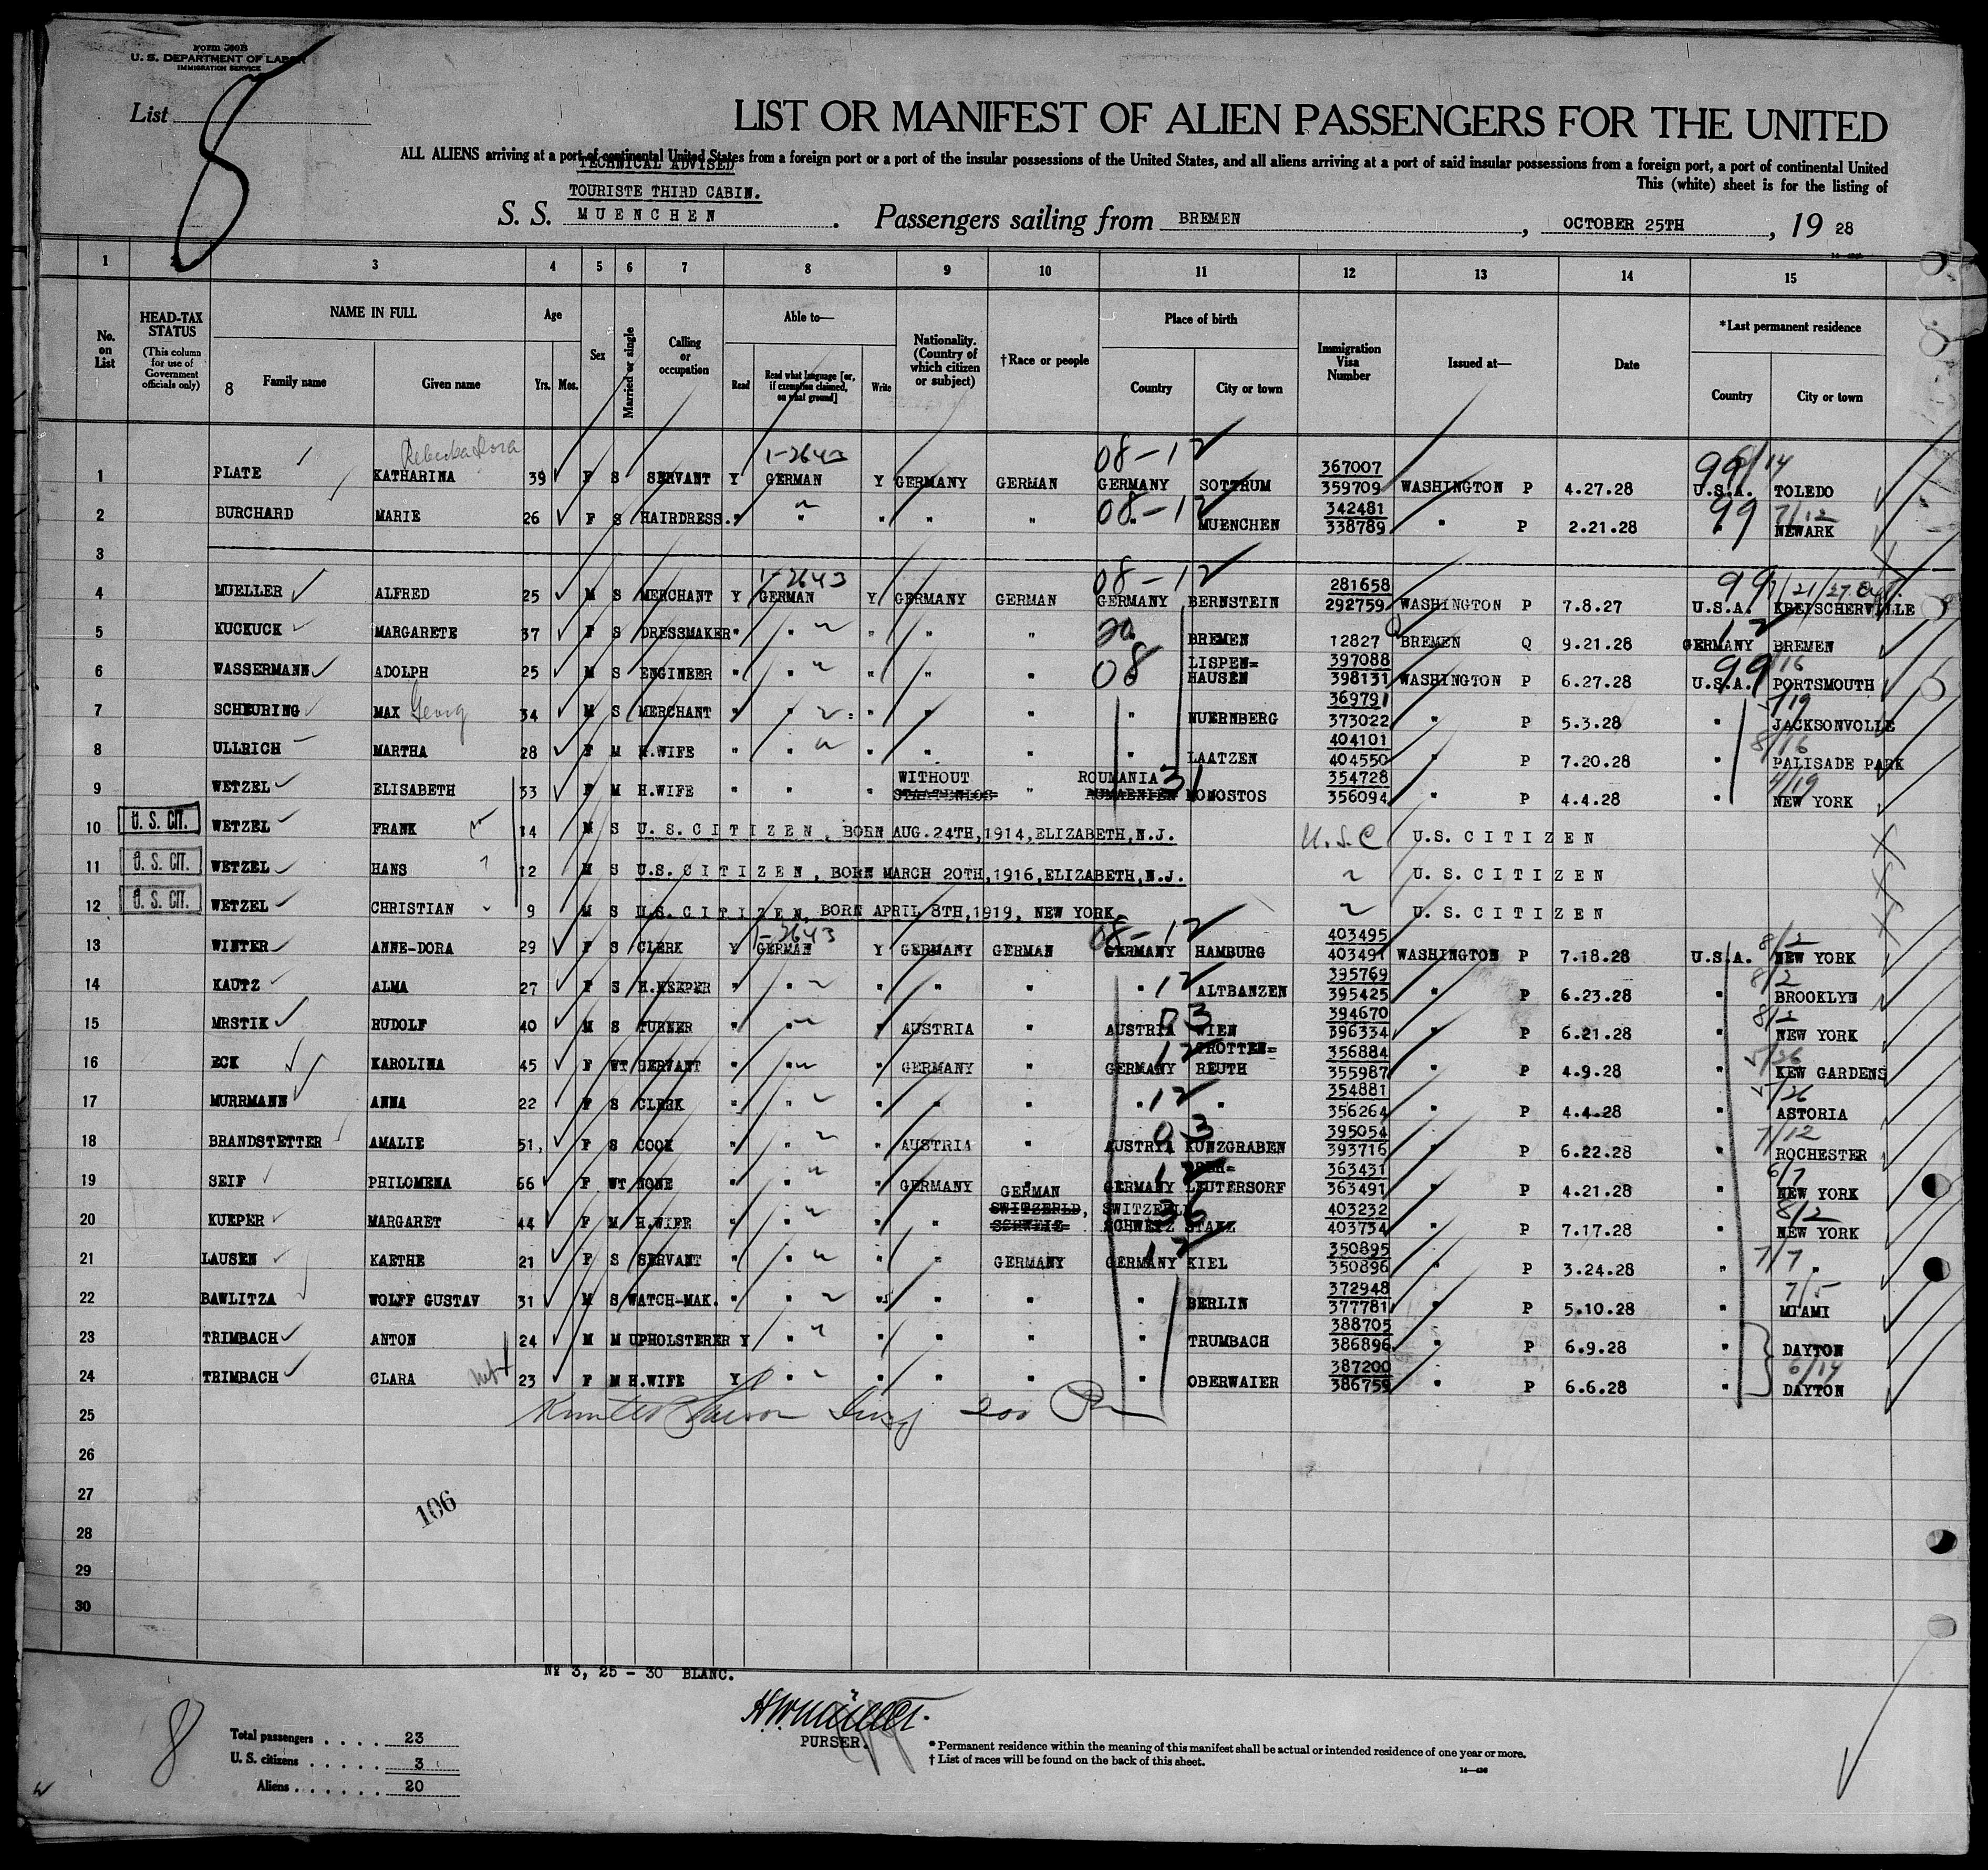 Form 500B
U. S. DEPARTMENT OF LABOR
IMMIGRATION SERVICE
List 8
LIST OR MANIFEST OF ALIEN PASSENGERS FOR THE UNITED
ALL ALIENS arriving at a port of continental United States from a foreign port or a port of the insular possessions of the United States, and all aliens arriving at a port of said insular possessions from a foreign port, a port of continental United
TECHNICAL ADVISED
This (white) sheet is for the listing of
TOURISTE THIRD CABIN.
S. S. MUENCHEN. Passengers sailing from BREMEN, OCTOBER 25TH, 19 28
1 2 3 4 5 6 7 8 9 10 11 12 13 14 15
No. on List
HEAD-TAX STATUS
(This column for use of Government officials only)
NAME IN FULL
8 Family name
Given name
Age
Yrs. Mos.
Sex
Married or single
Calling or occupation
Able to—
Read
Read what language [or, if exemption claimed, on what ground]
Write
Nationality. (Country of which citizen or subject)
†Race or people
Place of birth
Country
City or town
Immigration Visa Number
Issued at—
Date
*Last permanent residence
Country
City or town
1 PLATE KATHARINA 39 F S SERVANT Y 1-2643 GERMAN Y GERMANY GERMAN 08-12 GERMANY SOTTRUM 367007 359709 WASHINGTON P 4.27.28 99 U.S.A. TOLEDO
2 BURCHARD MARIE 26 F S HAIRDRESS. " " " " " 08-12 MUENCHEN 342481 338789 " P 2.21.28 99 7/12 NEWARK
3
4 MUELLER ALFRED 25 M S MERCHANT Y 1-2643 GERMAN Y GERMANY GERMAN 08-12 GERMANY BERNSTEIN 281658 292759 WASHINGTON P 7.8.27 99 U.S.A. KREISCHERVILLE
5 KUCKUCK MARGARETE 37 F S DRESSMAKER " " " " " BREMEN 12827 BREMEN Q 9.21.28 GERMANY BREMEN
6 WASSERMANN ADOLPH 25 M S ENGINEER " " " " " 08 LISPEN= HAUSEN 397088 398131 WASHINGTON P 6.27.28 99 U.S.A. PORTSMOUTH
7 SCHEURING MAX Georg 34 M S MERCHANT " " " " " " NUERNBERG 369791 373022 " P 5.3.28 " JACKSONVOLLE
8 ULLRICH MARTHA 28 F M H.WIFE " " " " " " LAATZEN 404101 404550 " P 7.20.28 " 8/16 PALISADE PARK
9 WETZEL ELISABETH 33 F M H.WIFE " " " WITHOUT STAATENLOS " ROUMANIA RUMAENIEN 31 MONOSTOS 354728 356094 " P 4.4.28 " 4/19 NEW YORK
10 U. S. CIT. WETZEL FRANK 14 M S U.S. CITIZEN, BORN AUG.24TH,1914,ELIZABETH,N.J. U.S.C U.S. CITIZEN
11 U. S. CIT. WETZEL HANS 12 M S U.S. CITIZEN, BORN MARCH 20TH,1916,ELIZABETH,N.J. U. S. CITIZEN
12 U. S. CIT. WETZEL CHRISTIAN 9 M S U.S. CITIZEN, BORN APRIL 8TH,1919, NEW YORK U. S. CITIZEN
13 WINTER ANNE-DORA 29 F S CLERK Y 1-2643 GERMAN Y GERMANY GERMAN 08-12 GERMANY HAMBURG 403495 403491 WASHINGTON P 7.18.28 U.S.A. 8/2 NEW YORK
14 KAUTZ ALMA 27 F S H.KEEPER " " " " " " 12 ALTBANZEN 395769 395425 " P 6.23.28 " 8/2 BROOKLYN
15 MRSTIK RUDOLF 40 M S TURNER " " " AUSTRIA " AUSTRIA 03 WIEN 394670 396334 " P 6.21.28 " 8/2 NEW YORK
16 ECK KAROLINA 45 F WT SERVANT " " " GERMANY " GERMANY 12 TROTTEN= REUTH 356884 355987 " P 4.9.28 " 5/26 KEW GARDENS
17 MURRMANN ANNA 22 F S CLERK " " " " " " 12 " 354881 356264 " P 4.4.28 " 5/26 ASTORIA
18 BRANDSTETTER AMALIE 51, F S COOK " " " AUSTRIA " AUSTRIA 03 KUNZGRABEN 395054 393716 " P 6.22.28 " 7/12 ROCHESTER
19 SEIF PHILOMENA 66 F WT NONE " " " GERMANY " GERMANY 12 LEUTERSORF 363431 363491 " P 4.21.28 " 6/7 NEW YORK
20 KUEPER MARGARET 44 F M H.WIFE " " " " GERMAN SWITZERLD, SCHWEIZ= SWITZERL SCHWEIZ 36 STANZ 403232 403734 " P 7.17.28 " 8/2 NEW YORK
21 LAUSEN KAETHE 21 F S SERVANT " " " " GERMANY GERMANY 12 KIEL 350895 350896 " P 3.24.28 " 7/7 "
22 BAWLITZA WOLFF GUSTAV 31 M S WATCH-MAK. " " " " " " BERLIN 372948 377781 " P 5.10.28 " 7/5 MIAMI
23 TRIMBACH ANTON 24 M M UPHOLSTERER Y " " " " " TRUMBACH 388705 386896 " P 6.9.28 " DAYTON
24 TRIMBACH CLARA 23 F M H.WIFE Y " " " " " OBERWAIER 387200 386759 " P 6.6.28 " 6/14 DAYTON
25
26
27
28
29
30
106
№ 3, 25 - 30 BLANC.
8
Total passengers . . . . 23
U. S. citizens . . . . . 3
Aliens . . . . . . 20
PURSER.
* Permanent residence within the meaning of this manifest shall be actual or intended residence of one year or more.
† List of races will be found on the back of this sheet.
14—436